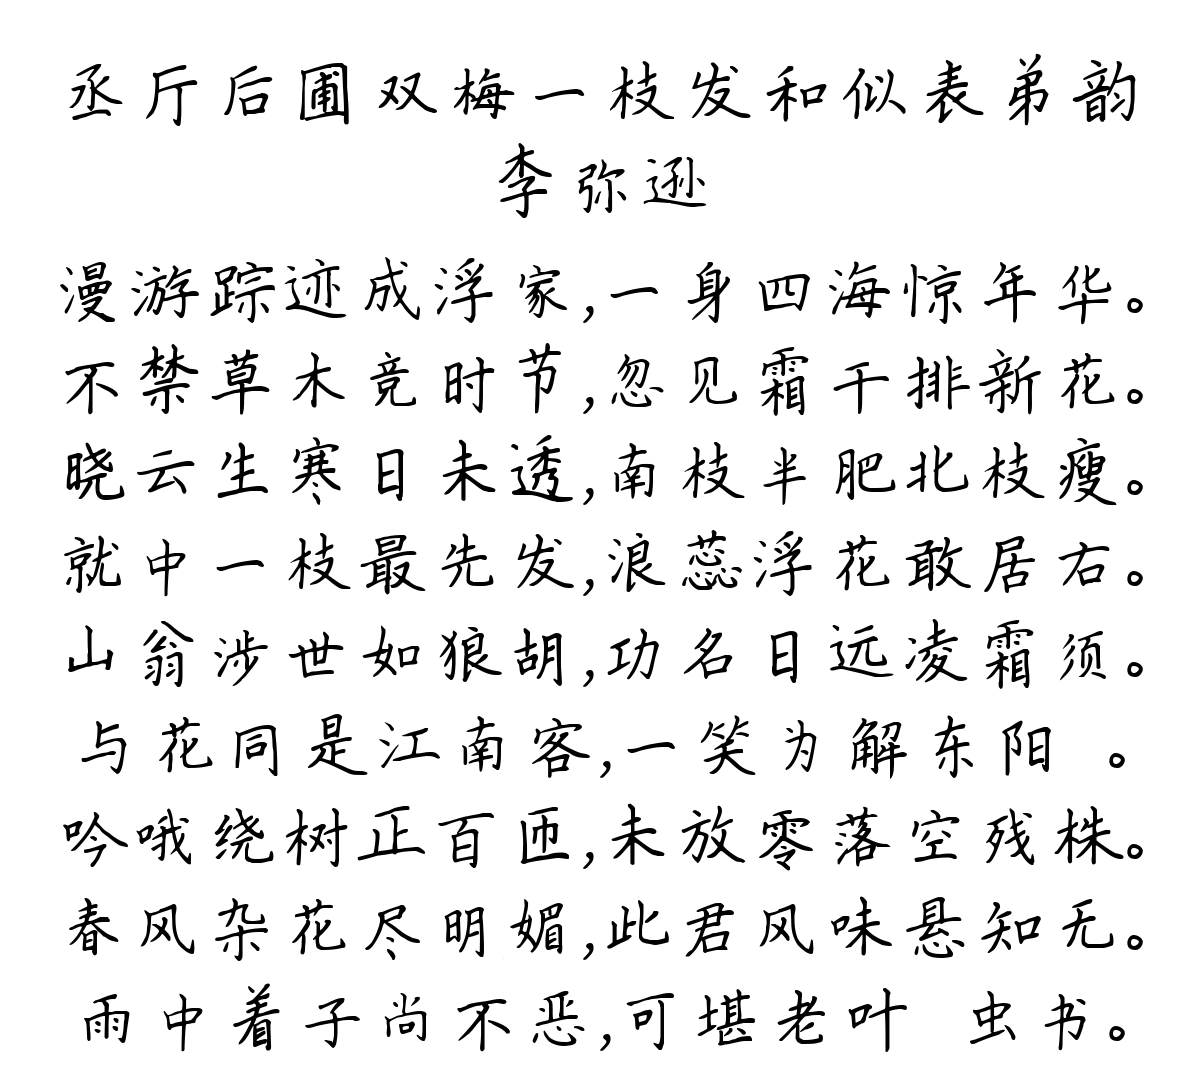 丞厅后圃双梅一枝发和似表弟韵
李弥逊
漫游踪迹成浮家,一身四海惊年华。
不禁草木竞时节,忽见霜干排新花。
晓云生寒日未透,南枝半肥北枝瘦。
就中一枝最先发,浪蕊浮花敢居右。
山翁涉世如狼胡,功名日远凌霜须。
与花同是江南客,一笑为解东阳 。
吟哦绕树正百匝,未放零落空残株。
春风杂花尽明媚,此君风味悬知无。
雨中着子尚不恶,可堪老叶 虫书。